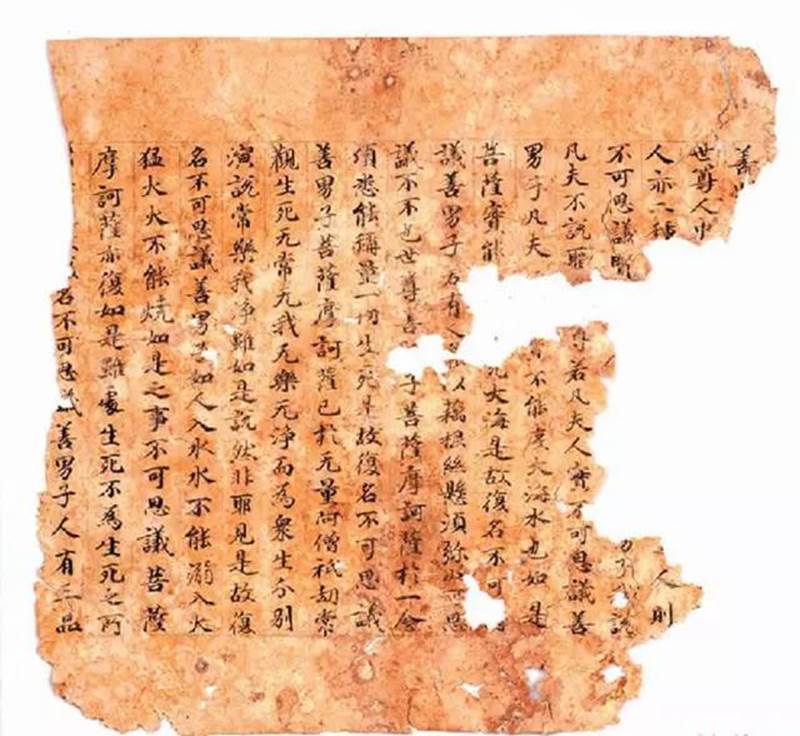 善
世尊人中
人亦二種人則
不可思議
凡夫不說耶若凡夫人實不可思議善
男子凡夫不能度大海水也如是
菩薩實能大海是故復名不可
議善男子若有人以藕根絲懸須弥思
議不不也世尊善子菩薩摩訶薩於一念
頃悉能稱量一切生死是故復名不可思議
善男子菩薩摩訶薩已於无量阿僧祇劫常
觀生死无常无我无樂无淨而為衆生分別
演說常樂我淨雖如是說然非耶見是故復
名不可思議善男子如人入水水不能溺入大
猛火火不能燒如是之事不可思議菩薩
摩訶薩亦復如是雖處生死不為生死之所
名不可思議善男子人有三品